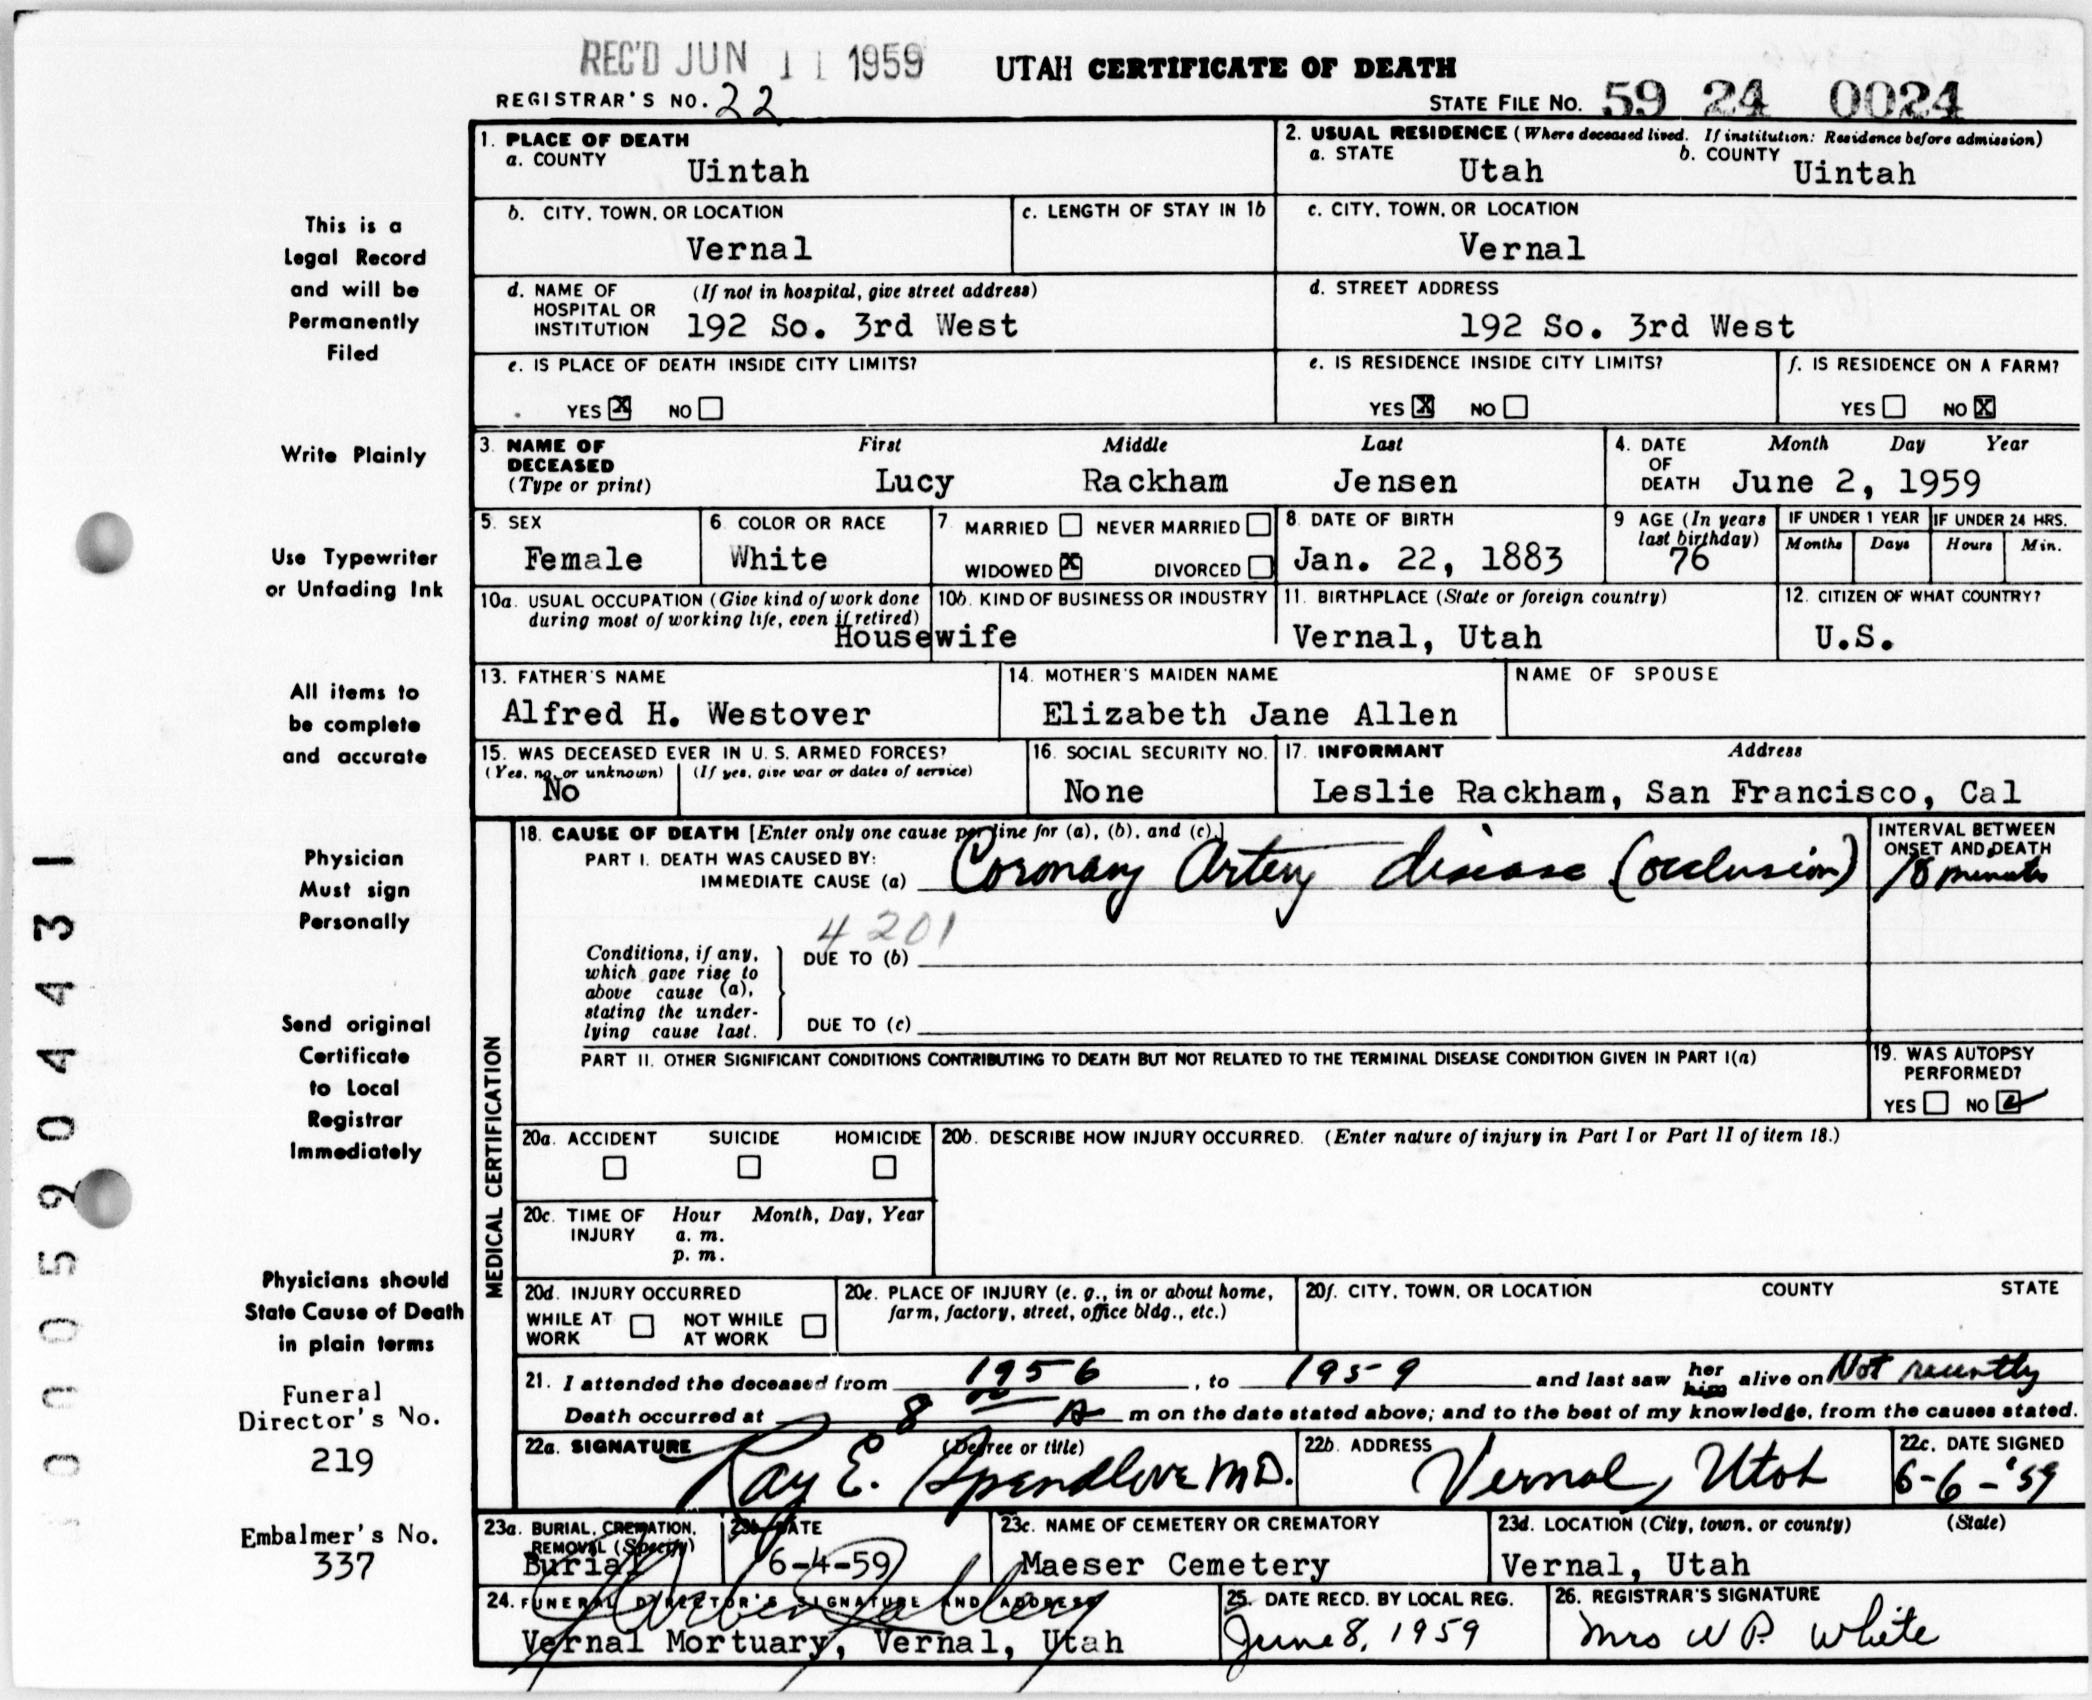 REC'D JUN 11 1959
UTAH CERTIFICATE OF DEATH
REGISTRAR'S NO. 22
STATE FILE NO. 59 24 0024
1. PLACE OF DEATH
a. COUNTY Uintah
2. USUAL RESIDENCE (Where deceased lived. If institution: Residence before admission)
a. STATE Utah b. COUNTY Uintah
b. CITY, TOWN, OR LOCATION Vernal
c. LENGTH OF STAY IN 1b
c. CITY, TOWN, OR LOCATION Vernal
d. NAME OF HOSPITAL OR INSTITUTION (If not in hospital, give street address) 192 So. 3rd West
d. STREET ADDRESS 192 So. 3rd West
e. IS PLACE OF DEATH INSIDE CITY LIMITS?
YES X NO
e. IS RESIDENCE INSIDE CITY LIMITS?
YES X NO
f. IS RESIDENCE ON A FARM?
YES NO X
3. NAME OF DECEASED (Type or print)
First Middle Last
Lucy Rackham Jensen
4. DATE OF DEATH Month Day Year
June 2, 1959
5. SEX Female
6. COLOR OR RACE White
7. MARRIED NEVER MARRIED
WIDOWED X DIVORCED
8. DATE OF BIRTH Jan. 22, 1883
9 AGE (In years last birthday) 76
IF UNDER 1 YEAR Months Days
IF UNDER 24 HRS. Hours Min.
10a. USUAL OCCUPATION (Give kind of work done during most of working life, even if retired)
10b. KIND OF BUSINESS OR INDUSTRY
Housewife
11. BIRTHPLACE (State or foreign country) Vernal, Utah
12. CITIZEN OF WHAT COUNTRY? U.S.
13. FATHER'S NAME Alfred H. Westover
14. MOTHER'S MAIDEN NAME Elizabeth Jane Allen
NAME OF SPOUSE
15. WAS DECEASED EVER IN U.S. ARMED FORCES?
(Yes, no, or unknown) (If yes, give war or dates of service)
No
16. SOCIAL SECURITY NO. None
17. INFORMANT Address
Leslie Rackham, San Francisco, Cal
MEDICAL CERTIFICATION
18. CAUSE OF DEATH [Enter only one cause per line for (a), (b), and (c).]
PART I. DEATH WAS CAUSED BY:
IMMEDIATE CAUSE (a) Coronary Artery disease (occlusion)
INTERVAL BETWEEN ONSET AND DEATH
minutes
4201
Conditions, if any, which gave rise to above cause (a), stating the underlying cause last.
DUE TO (b)
DUE TO (c)
PART II. OTHER SIGNIFICANT CONDITIONS CONTRIBUTING TO DEATH BUT NOT RELATED TO THE TERMINAL DISEASE CONDITION GIVEN IN PART I(a)
19. WAS AUTOPSY PERFORMED?
YES NO
20a. ACCIDENT SUICIDE HOMICIDE
20b. DESCRIBE HOW INJURY OCCURRED. (Enter nature of injury in Part I or Part II of item 18.)
20c. TIME OF INJURY Hour Month, Day, Year
a. m.
p. m.
20d. INJURY OCCURRED
WHILE AT WORK NOT WHILE AT WORK
20e. PLACE OF INJURY (e. g., in or about home, farm, factory, street, office bldg., etc.)
20f. CITY, TOWN, OR LOCATION COUNTY STATE
21. I attended the deceased from 1956, to 1959 and last saw her him alive on Not recently
Death occurred at 8 00 A m on the date stated above; and to the best of my knowledge, from the causes stated.
22a. SIGNATURE (Degree or title)
Ray E. Spendlove M.D.
22b. ADDRESS Vernal, Utah
22c. DATE SIGNED 6-6-'59
23a. BURIAL, CREMATION, REMOVAL (Specify) Burial
23b. DATE 6-4-59
23c. NAME OF CEMETERY OR CREMATORY Maeser Cemetery
23d. LOCATION (City, town, or county) (State)
Vernal, Utah
24. FUNERAL DIRECTOR'S SIGNATURE AND ADDRESS
Vernal Mortuary, Vernal, Utah
25. DATE RECD. BY LOCAL REG. June 8, 1959
26. REGISTRAR'S SIGNATURE Mrs W P. White
This is a
Legal Record
and will be
Permanently
Filed
Write Plainly
Use Typewriter
or Unfading Ink
All items to
be complete
and accurate
Physician
Must sign
Personally
Send original
Certificate
to Local
Registrar
Immediately
Physicians should
State Cause of Death
in plain terms
Funeral
Director's No.
219
Embalmer's No.
337
0005920431